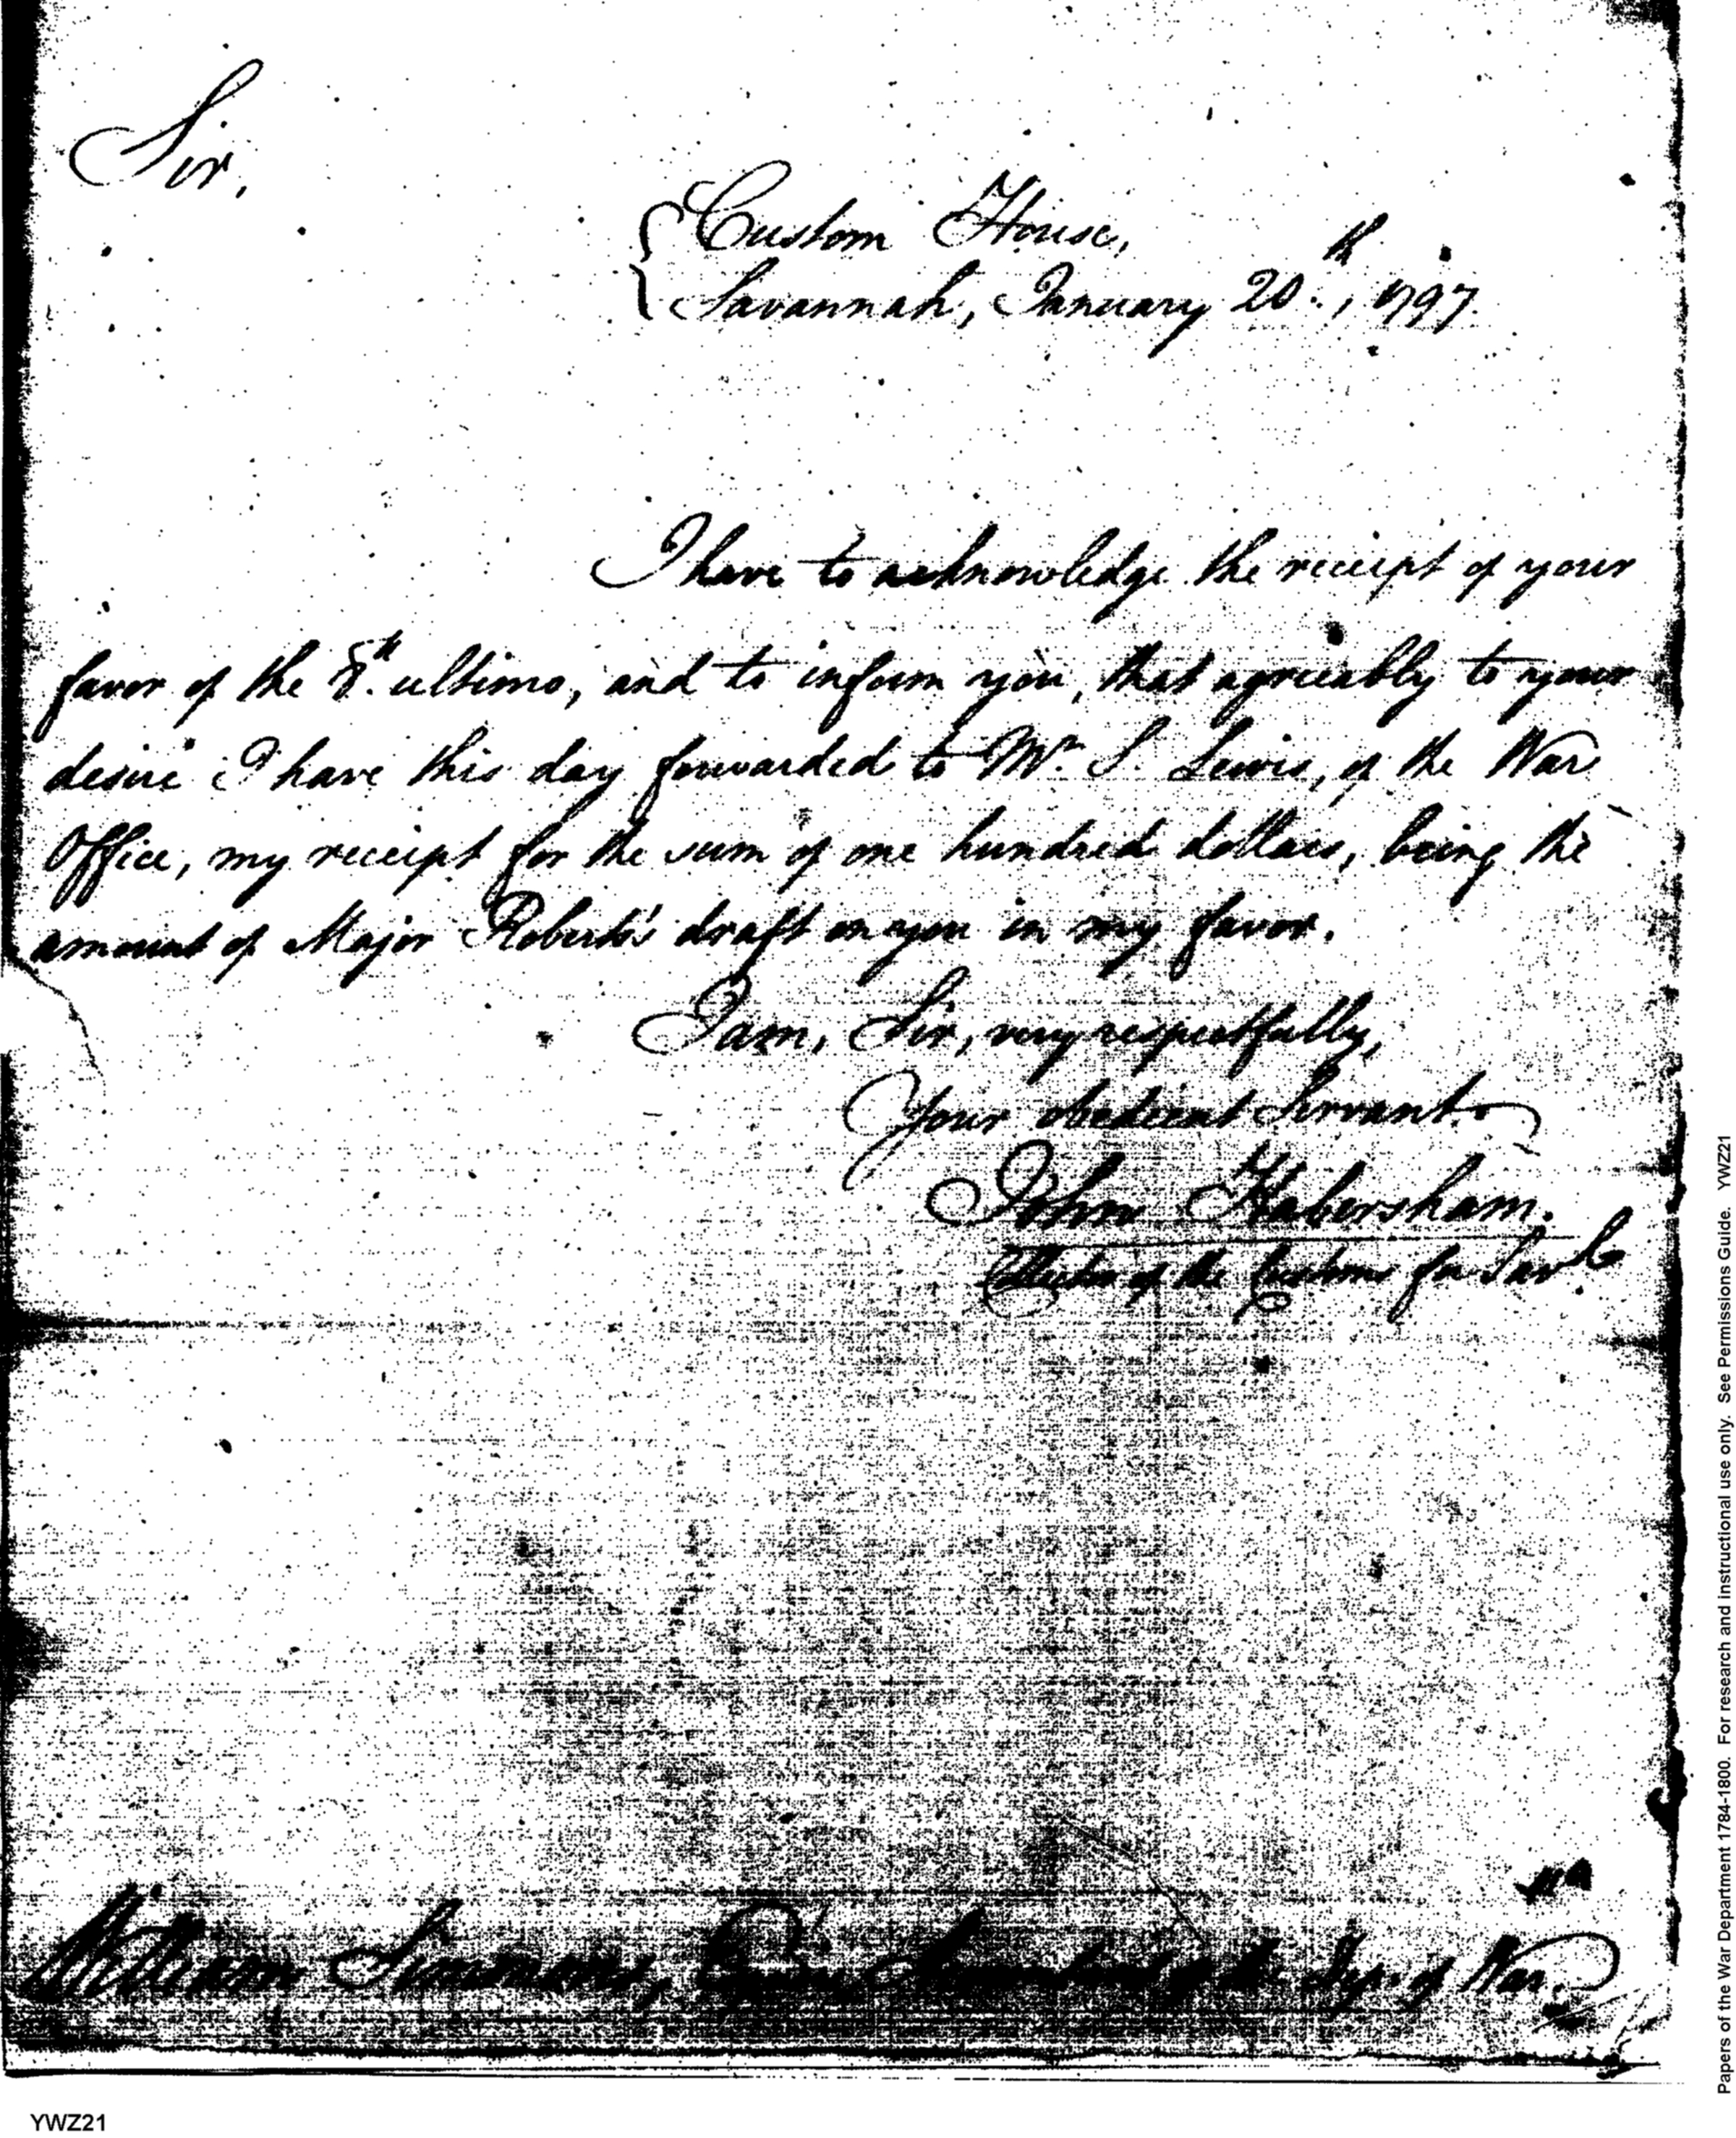 Sir,
Custom House,
Savannah, January 20th, 1797.
I have to acknowledge the receipt of your
favor of the 8th ultimo, and to inform you, that agreeably to your
desire I have this day forwarded to Mr. S. Lewis, of the War
Office, my receipt for the sum of one hundred dollars, being the
amount of Major Roberts's draft on you in my favor.
I am, Sir, very respectfully,
Your obedient Servant.
John Habersham.
Collector of the Customs for Savh
William Simmons, Esquire, Accountant of the Dep. of War.
YWZ21
Papers of the War Department 1784-1800. For research and instructional use only. See Permissions Guide. YWZ21